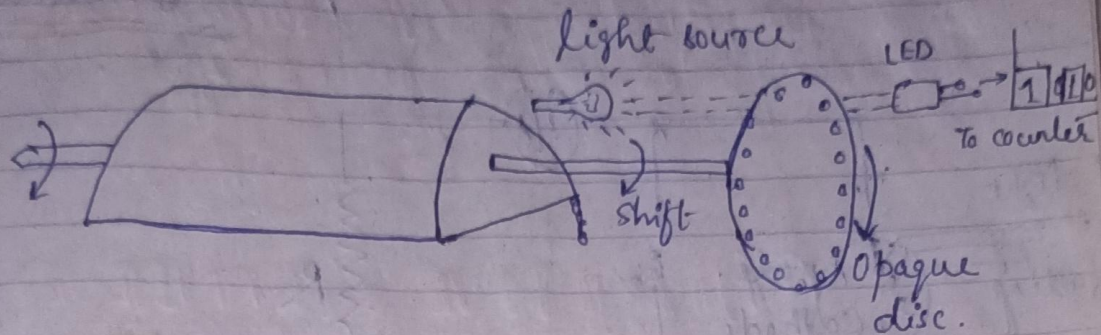 light source
LED
1 0 1 0
To counter
shift
Opaque
disc.